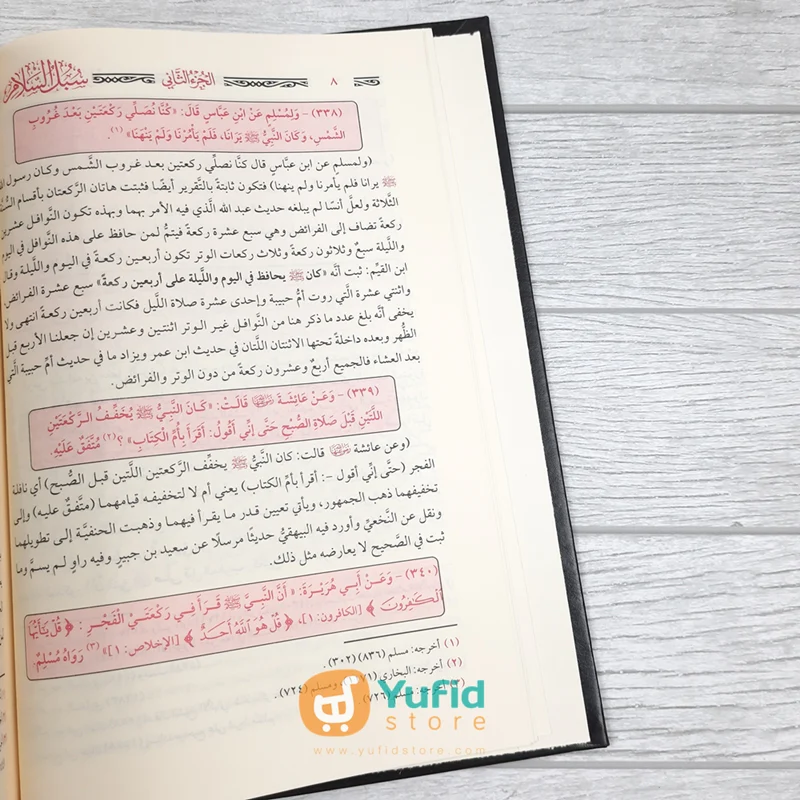 سُبُلُ السَّلَام
الجُزءُ الثَّاني
٨
(٣٣٨) - وَلِمُسْلِمٍ عَنْ ابْنِ عَبَّاسٍ قَالَ: «كُنَّا نُصَلِّي رَكْعَتَيْنِ بَعْدَ غُرُوبِ
الشَّمْسِ، وَكَانَ النَّبِيُّ ﷺ يَرَانَا، فَلَمْ يَأْمُرْنَا وَلَمْ يَنْهَنَا» (١).
(ولمسلم عن ابن عبَّاسٍ قال كنَّا نصلِّي ركعتين بعد غروب الشَّمس وكان رسول
ﷺ يرانا فلم يأمرنا ولم ينهنا) فتكون ثابتةً بالتَّقرير أيضًا فثبتت هاتان الرَّكعتان بأقسام
الثَّلاثة ولعلَّ أنسًا لم يبلغه حديث عبد الله الَّذي فيه الأمر بهما وبهذه تكون النَّوافل عشرين
ركعةً تضاف إلى الفرائض وهي سبع عشرة ركعةً فيتمُّ لمن حافظ على هذه النَّوافل في اليوم
واللَّيلة سبعٌ وثلاثون ركعةً وثلاث ركعات الوتر تكون أربعين ركعةً في اليوم واللَّيلة وقال
ابن القيِّم: ثبت أنَّه «كان ﷺ يحافظ في اليوم واللَّيلة على أربعين ركعةً» سبع عشرة الفرائض
واثنتي عشرة الَّتي روت أمُّ حبيبة وإحدى عشرة صلاة اللَّيل فكانت أربعين ركعةً انتهى ولا
يخفى أنَّه بلغ عدد ما ذكر هنا من النَّوافل غير الوتر اثنتين وعشرين إن جعلنا الأربع قبل
الظُّهر وبعده داخلةً تحتها الاثنتان اللَّتان في حديث ابن عمر ويزاد ما في حديث أمِّ حبيبة الَّتي
بعد العشاء فالجميع أربعٌ وعشرون ركعةً من دون الوتر والفرائض.
(٣٣٩) - وَعَنْ عَائِشَةَ رَضِيَ اللهُ عَنْهَا قَالَتْ: «كَانَ النَّبِيُّ ﷺ يُخَفِّفُ الرَّكْعَتَيْنِ
اللَّتَيْنِ قَبْلَ صَلَاةِ الصُّبْحِ حَتَّى إنِّي أَقُولُ: أَقَرَأَ بِأُمِّ الْكِتَابِ» ؟ (٢) مُتَّفَقٌ عَلَيْهِ.
(وعن عائشة رضي الله عنها قالت: كان النَّبيُّ ﷺ يخفِّف الرَّكعتين اللَّتين قبل الصُّبح) أي نافلة
الفجر (حتَّى إنِّي أقول -: أقرأ بأمِّ الكتاب) يعني أم لا لتخفيفه قيامهما (متَّفقٌ عليه) وإلى
تخفيفهما ذهب الجمهور، ويأتي تعيين قدر ما يقرأ فيهما وذهبت الحنفيَّة إلى تطويلهما
ونقل عن النَّخعيِّ وأورد فيه البيهقيُّ حديثًا مرسلًا عن سعيد بن جبيرٍ وفيه راوٍ لم يسمَّ وما
ثبت في الصَّحيح لا يعارضه مثل ذلك.
(٣٤٠) - وَعَنْ أَبِي هُرَيْرَةَ: «أَنَّ النَّبِيَّ ﷺ قَرَأَ فِي رَكْعَتَيْ الْفَجْرِ: ﴿ قُلْ يَٰٓأَيُّهَا
ٱلْكَٰفِرُونَ ﴾ [الكافرون: ١]، ﴿ قُلْ هُوَ ٱللَّهُ أَحَدٌ ﴾ [الإخلاص: ١]» (٣) رَوَاهُ مُسْلِمٌ.
(١) أخرجه: مسلم (٨٣٦) (٣٠٢).
(٢) أخرجه: البخاري ومسلم (٧٢٤)
(٣) أخرجه: مسلم (٧٢٦).
Yufid
store
www.yufidstore.com